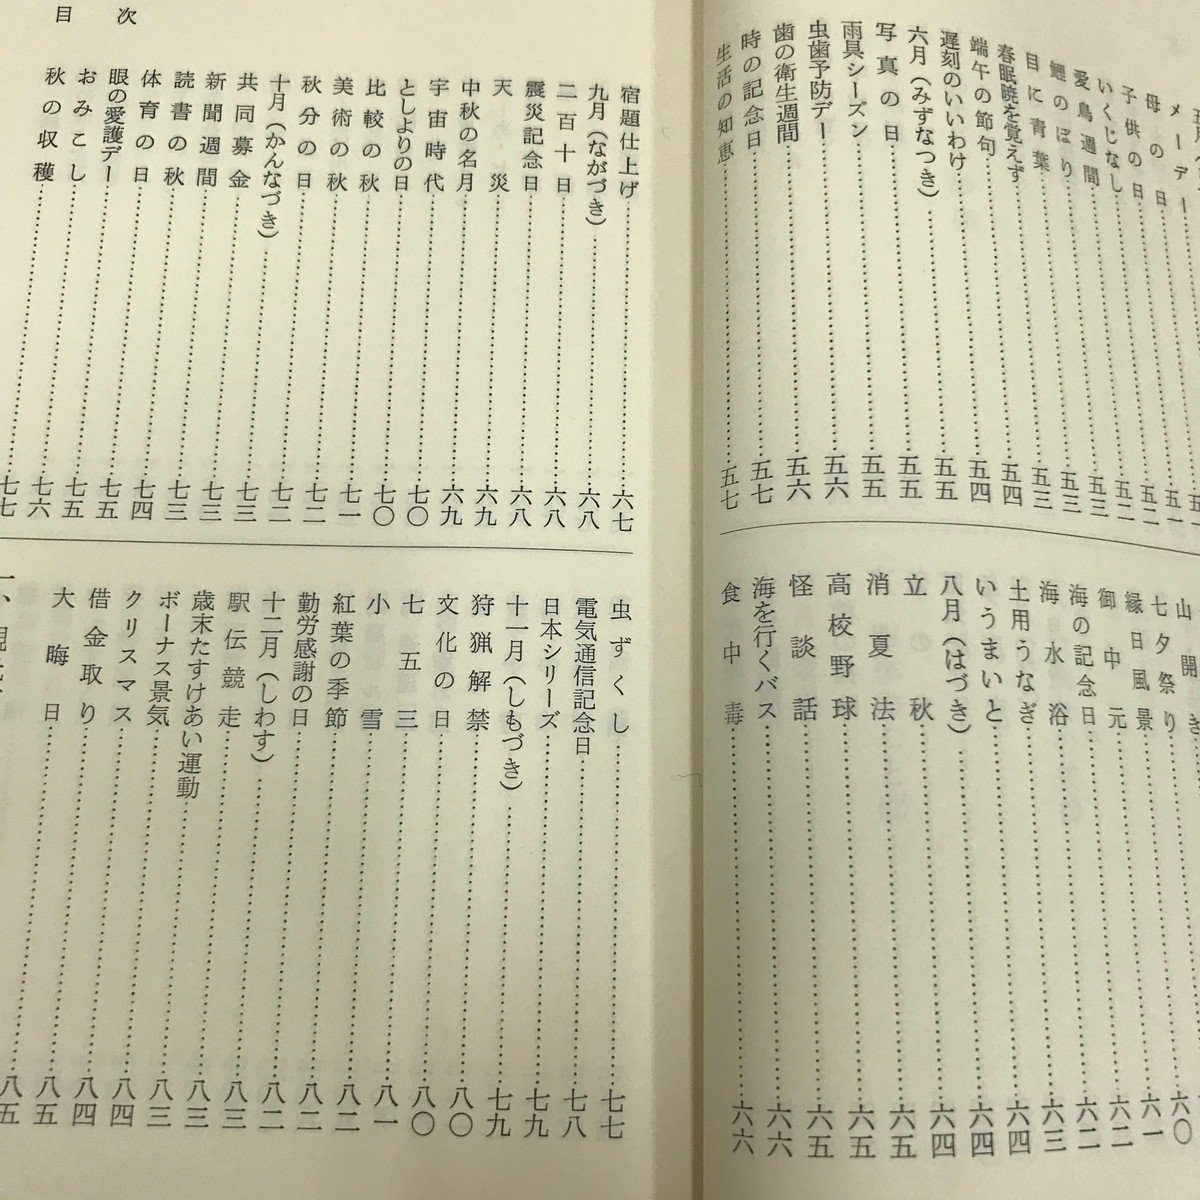 メーデー
母の日……五
子供の日……五一
いくじなし……五二
愛鳥週間……五二
鯉のぼり……五三
目に青葉……五三
春眠暁を覚えず……五三
端午の節句……五四
遅刻のいいわけ……五四
六月(みずなつき)……五五
写真の日……五五
雨具シーズン……五五
虫歯予防デー……五六
歯の衛生週間……五六
時の記念日……五七
生活の知恵……五七
山開き
七夕祭り
縁日風景……六〇
御中元……六一
海の記念日……六二
海水浴……六二
土用うなぎ……六三
いうまいと……六四
八月(はづき)……六四
立秋……六四
消夏法……六五
高校野球……六五
怪談話……六五
海を行くバス……六六
食中毒……六六
目次
宿題仕上げ……六七
九月(ながづき)……六八
二百十日……六八
震災記念日……六八
天災……六九
中秋の名月……六九
宇宙時代……七〇
としよりの日……七〇
比較の秋……七一
美術の秋……七二
秋分の日……七二
十月(かんなづき)……七三
共同募金……七三
新聞週間……七三
読書の秋……七四
体育の日……七五
眼の愛護デー……七五
おみこし……七六
秋の収穫……七七
虫ずくし……七七
電気通信記念日……七八
日本シリーズ……七九
十一月(しもづき)……七九
狩猟解禁……八〇
文化の日……八〇
七五三……八一
小雪……八二
紅葉の季節……八二
勤労感謝の日……八二
十二月(しわす)……八三
駅伝競走……八三
歳末たすけあい運動……八三
ボーナス景気……八四
クリスマス……八四
借金取り……八五
大晦日……八五